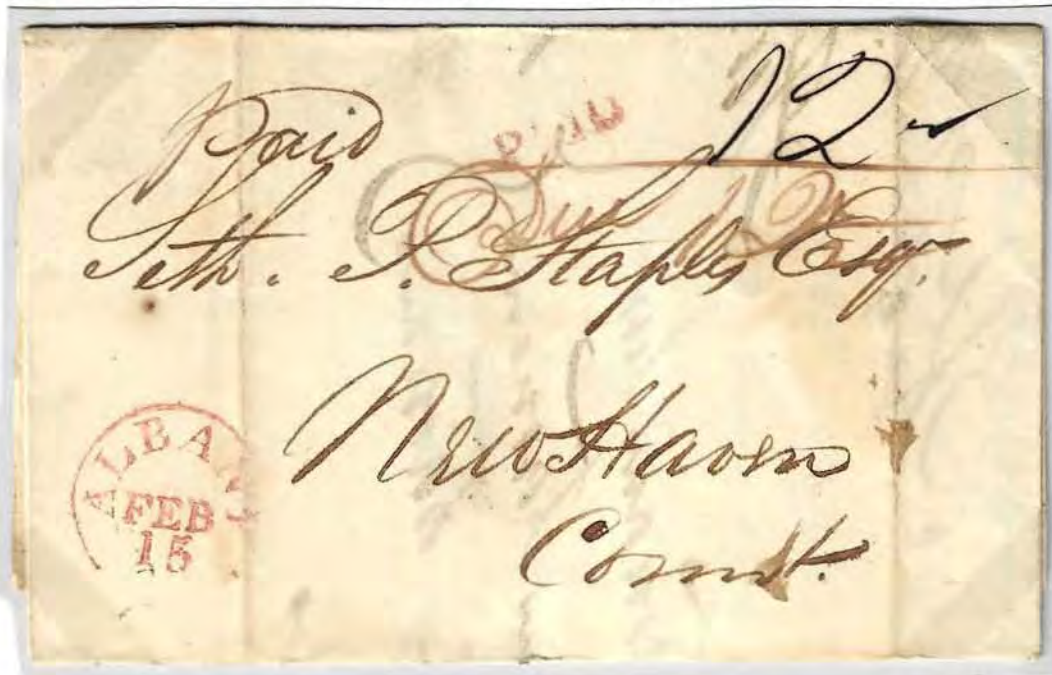 Paid PAID 12
Due 12
Seth. P. Staples Esqr.
New Haven
Connt.
ALBANY
FEB
15